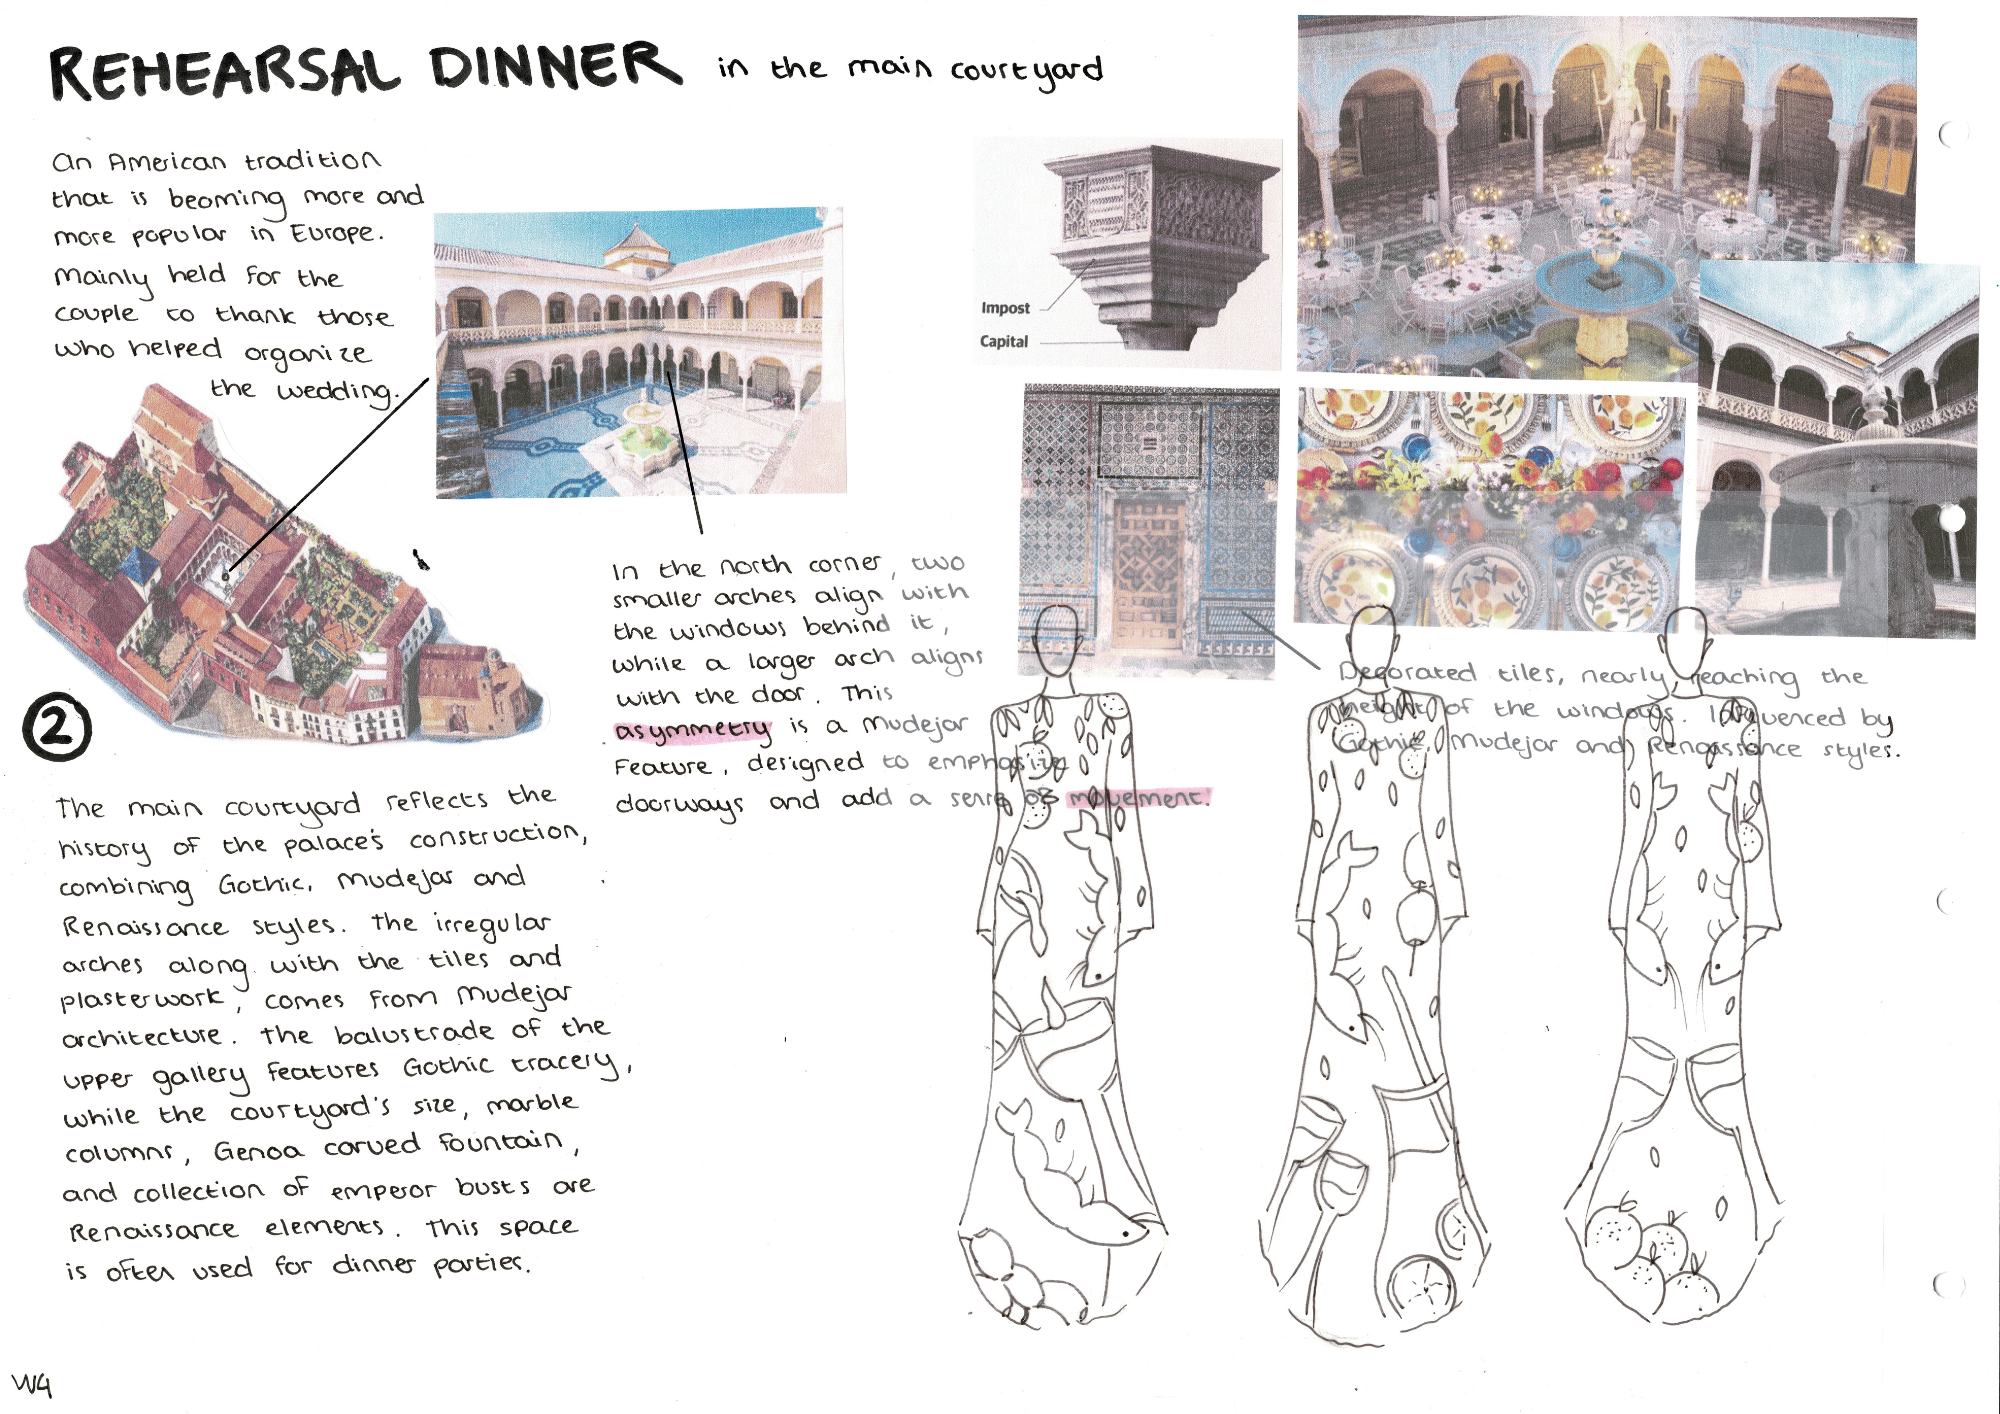 REHEARSAL DINNER in the main courtyard
An American tradition
that is becoming more and
more popular in Europe.
Mainly held for the
couple to thank those
who helped organize
the wedding.
Impost
Capital
In the north corner, two
smaller arches align with
the windows behind it,
while a larger arch aligns
with the door. This
asymmetry is a Mudejar
Feature, designed to emphasize
doorways and add a sense of movement.
Decorated tiles, nearly reaching the
height of the windows. Influenced by
Gothic, Mudejar and Renaissance styles.
2
The main courtyard reflects the
history of the palace's construction,
combining Gothic, Mudejar and
Renaissance styles. The irregular
arches along with the tiles and
plasterwork, comes from Mudejar
architecture. The balustrade of the
upper gallery features Gothic tracery,
while the courtyard's size, marble
columns, Genoa carved fountain,
and collection of emperor busts are
Renaissance elements. This space
is often used for dinner parties.
W4